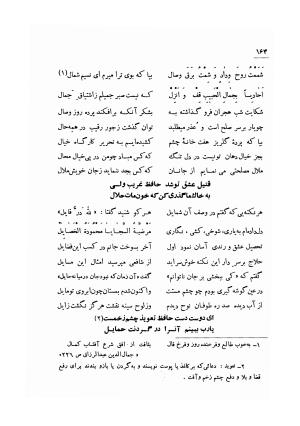 ۱۶۴
شممت روح وداد و شمت برق وصال بیا که بوی ترا میرم ای نسیم شمال (۱)
احادیا بجمال الحبیب قف و انزل که نیست صبر جمیلم ز اشتیاق جمال
شکایت شب هجران فرو گذار بشکر آنکه برافکند پرده روز وصال
چو یار بر سر صلح است و عذر میطلبد توان گذشت ز جور رقیب در همه حال
بیا که پردهٔ گلریز هفت خانهٔ چشم کشیده‌ایم به تحریر کارگاه خیال
بجز خیال دهان تو نیست در دل تنگ که کس مباد چو من در پی خیال محال
ملال مصلحتی می نمایم از جانان که کس بجد ننماید ز جان خویش ملال
قتیل عشق تو شد حافظ غریب ولی
به خاک ما گذری کن که خون مات حلال
هر نکته‌یی که گفتم در وصف آن شمایل هر کو شنید گفتا: «لله در قایل»
دلداده‌ام بیاری، شوخی، کشی، نگاری مرضیة السجایا محمودة الخصایل
تحصیل عشق و رندی آسان نمود اول آخر بسوخت جانم در کسب این فضایل
حلاج بر سر دار این نکته خوش سراید از شافعی مپرسید امثال این مسایل
گفتم «که کی ببخشی بر جان ناتوانم» گفت «آن زمان که نبود جان در میانه حایل»
در عین گوشه گیری بودم چو چشم مستت و اکنون شدم بمستان چون ابروی تو مایل
از آب دیده صد ره طوفان نوح دیدم وز لوح سینه نقشت هرگز نگشت زایل
ای دوست دست حافظ تعویذ چشم زخمست (۲)
یارب ببینم آنرا در گردنت حمایل
۱- بخوب طالع و فرخنده روز و فرخ فال بتافت از افق شرع آفتاب کمال
«جمال الدین عبدالرزاق ص ۲۲۶»
۲- تعویذ : دعائی که بر کاغذ یا پوست نویسند و به گردن یا بازو بندند برای دفع
قضا و بلا و دفع چشم زخم و آفت.